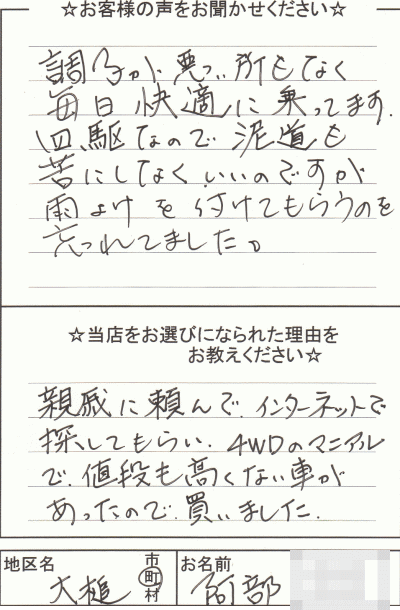 ☆お客様の声をお聞かせください☆
調子が悪い所もなく
毎日快適に乗ってます.
四駆なので泥道も
苦にしなくいいのですが
雨よけを付けてもらうのを
忘れてました。
☆当店をお選びになられた理由を
お教えください☆
親戚に頼んで.インターネットで
探してもらい.4WDのマニアル
で.値段も高くない車が
あったので.買いました.
地区名 大槌 市町村 お名前 阿部